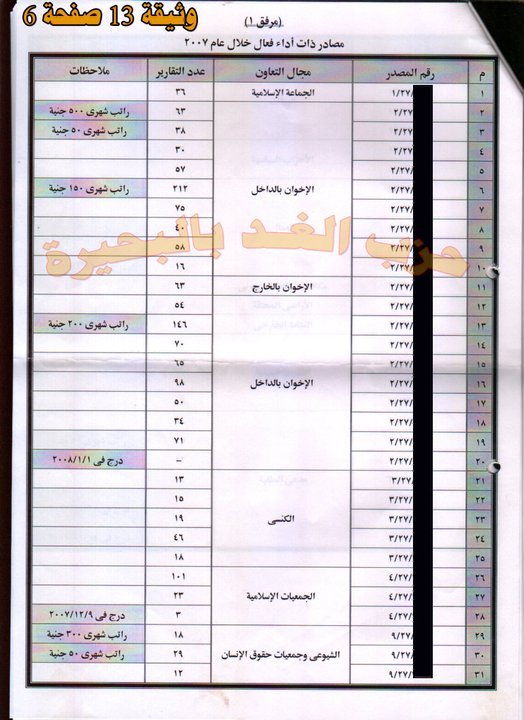 وثيقة 13 صفحة 6
(مرفق ١)
مصادر ذات أداء فعال خلال عام ٢٠٠٧
م رقم المصدر مجال التعاون عدد التقارير ملاحظات
١ ١/٢٧/ الجماعة الإسلامية ٣٦
٢ ٢/٢٧/ ٦٣ راتب شهرى ٥٠٠ جنية
٣ ٢/٢٧/ ٣٨ راتب شهرى ٥٠ جنية
٤ ٢/٢٧/ ٣٠
٥ ٢/٢٧/ ٥٧
٦ ٢/٢٧/ الإخوان بالداخل ٢١٢ راتب شهرى ١٥٠ جنية
٧ ٢/٢٧/ ٧٥
٨ ٢/٢٧/ ٤٠
٩ ٢/٢٧/ ٥٨
حزب الغد بالبحيرة
١٠ ٢/٢٧/ ١٦
١١ ٢/٢٧/ الإخوان بالخارج ٦٣
١٢ ٢/٢٧/ ٥٤
١٣ ٢/٢٧/ ١٤٦ راتب شهرى ٢٠٠ جنية
١٤ ٢/٢٧/ ٧٠
١٥ ٢/٢٧/ ٦٥
١٦ ٢/٢٧/ الإخوان بالداخل ٩٨
١٧ ٢/٢٧/ ٥٠
١٨ ٢/٢٧/ ٣٤
١٩ ٢/٢٧/ ٧١
٢٠ ٢/٢٧/ – درج فى ٢٠٠٨/١/١
٢١ ٣/٢٧/ ١�
٢٢ ٣/٢٧/ ١٥
٢٣ ٣/٢٧/ الكنسى ١٩
٢٤ ٣/٢٧/ ٤٦
٢٥ ٣/٢٧/ ١٨
٢٦ ٤/٢٧/ ١٠١
٢٧ ٤/٢٧/ الجمعيات الإسلامية ٢٣
٢٨ ٤/٢٧/ ٣ درج فى ٢٠٠٧/١٢/٩
٢٩ ٩/٢٧/ ١٨ راتب شهرى ٣٠٠ جنية
٣٠ ٩/٢٧/ الشيوعى وجمعيات حقوق الإنسان ٢٩ راتب شهرى ٥٠ جنية
٣١ ٩/٢٧/ ١٢